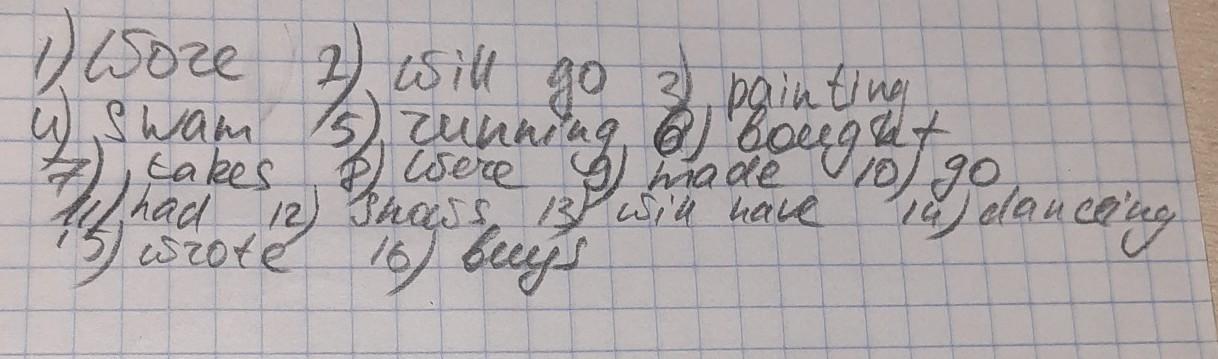 1) Wore 2) will go 3) painting
4) swam 5) running 6) bought
7) takes 8) were 9) made 10) go
11) had 12) 13) will have 14) danceing
15) wrote 16) buys